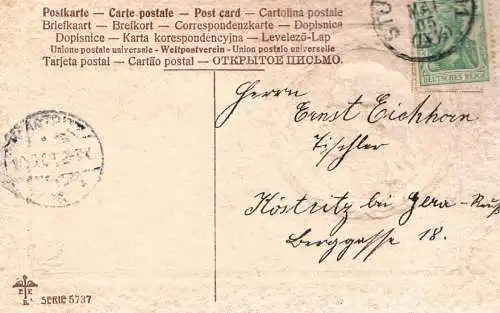 Postkarte — Carte postale — Post card — Cartolina postale
Briefkaart — Brefkort — Correspondenzkarte — Dopisnica
Dopisnice — Karta korespondencyjna — Levelező-Lap
Unione postale universale - Weltpostverein - Union postale universelle
Tarjeta postal — Cartão postal — ОТКРЫТОЕ ПИСЬМО.
MAI
05
DEUTSCHES REICH
Herrn
Ernst Eichhorn
Tischler
Köstritz bey Gera-Reuß
Berggasse 18.
SERIE 5737